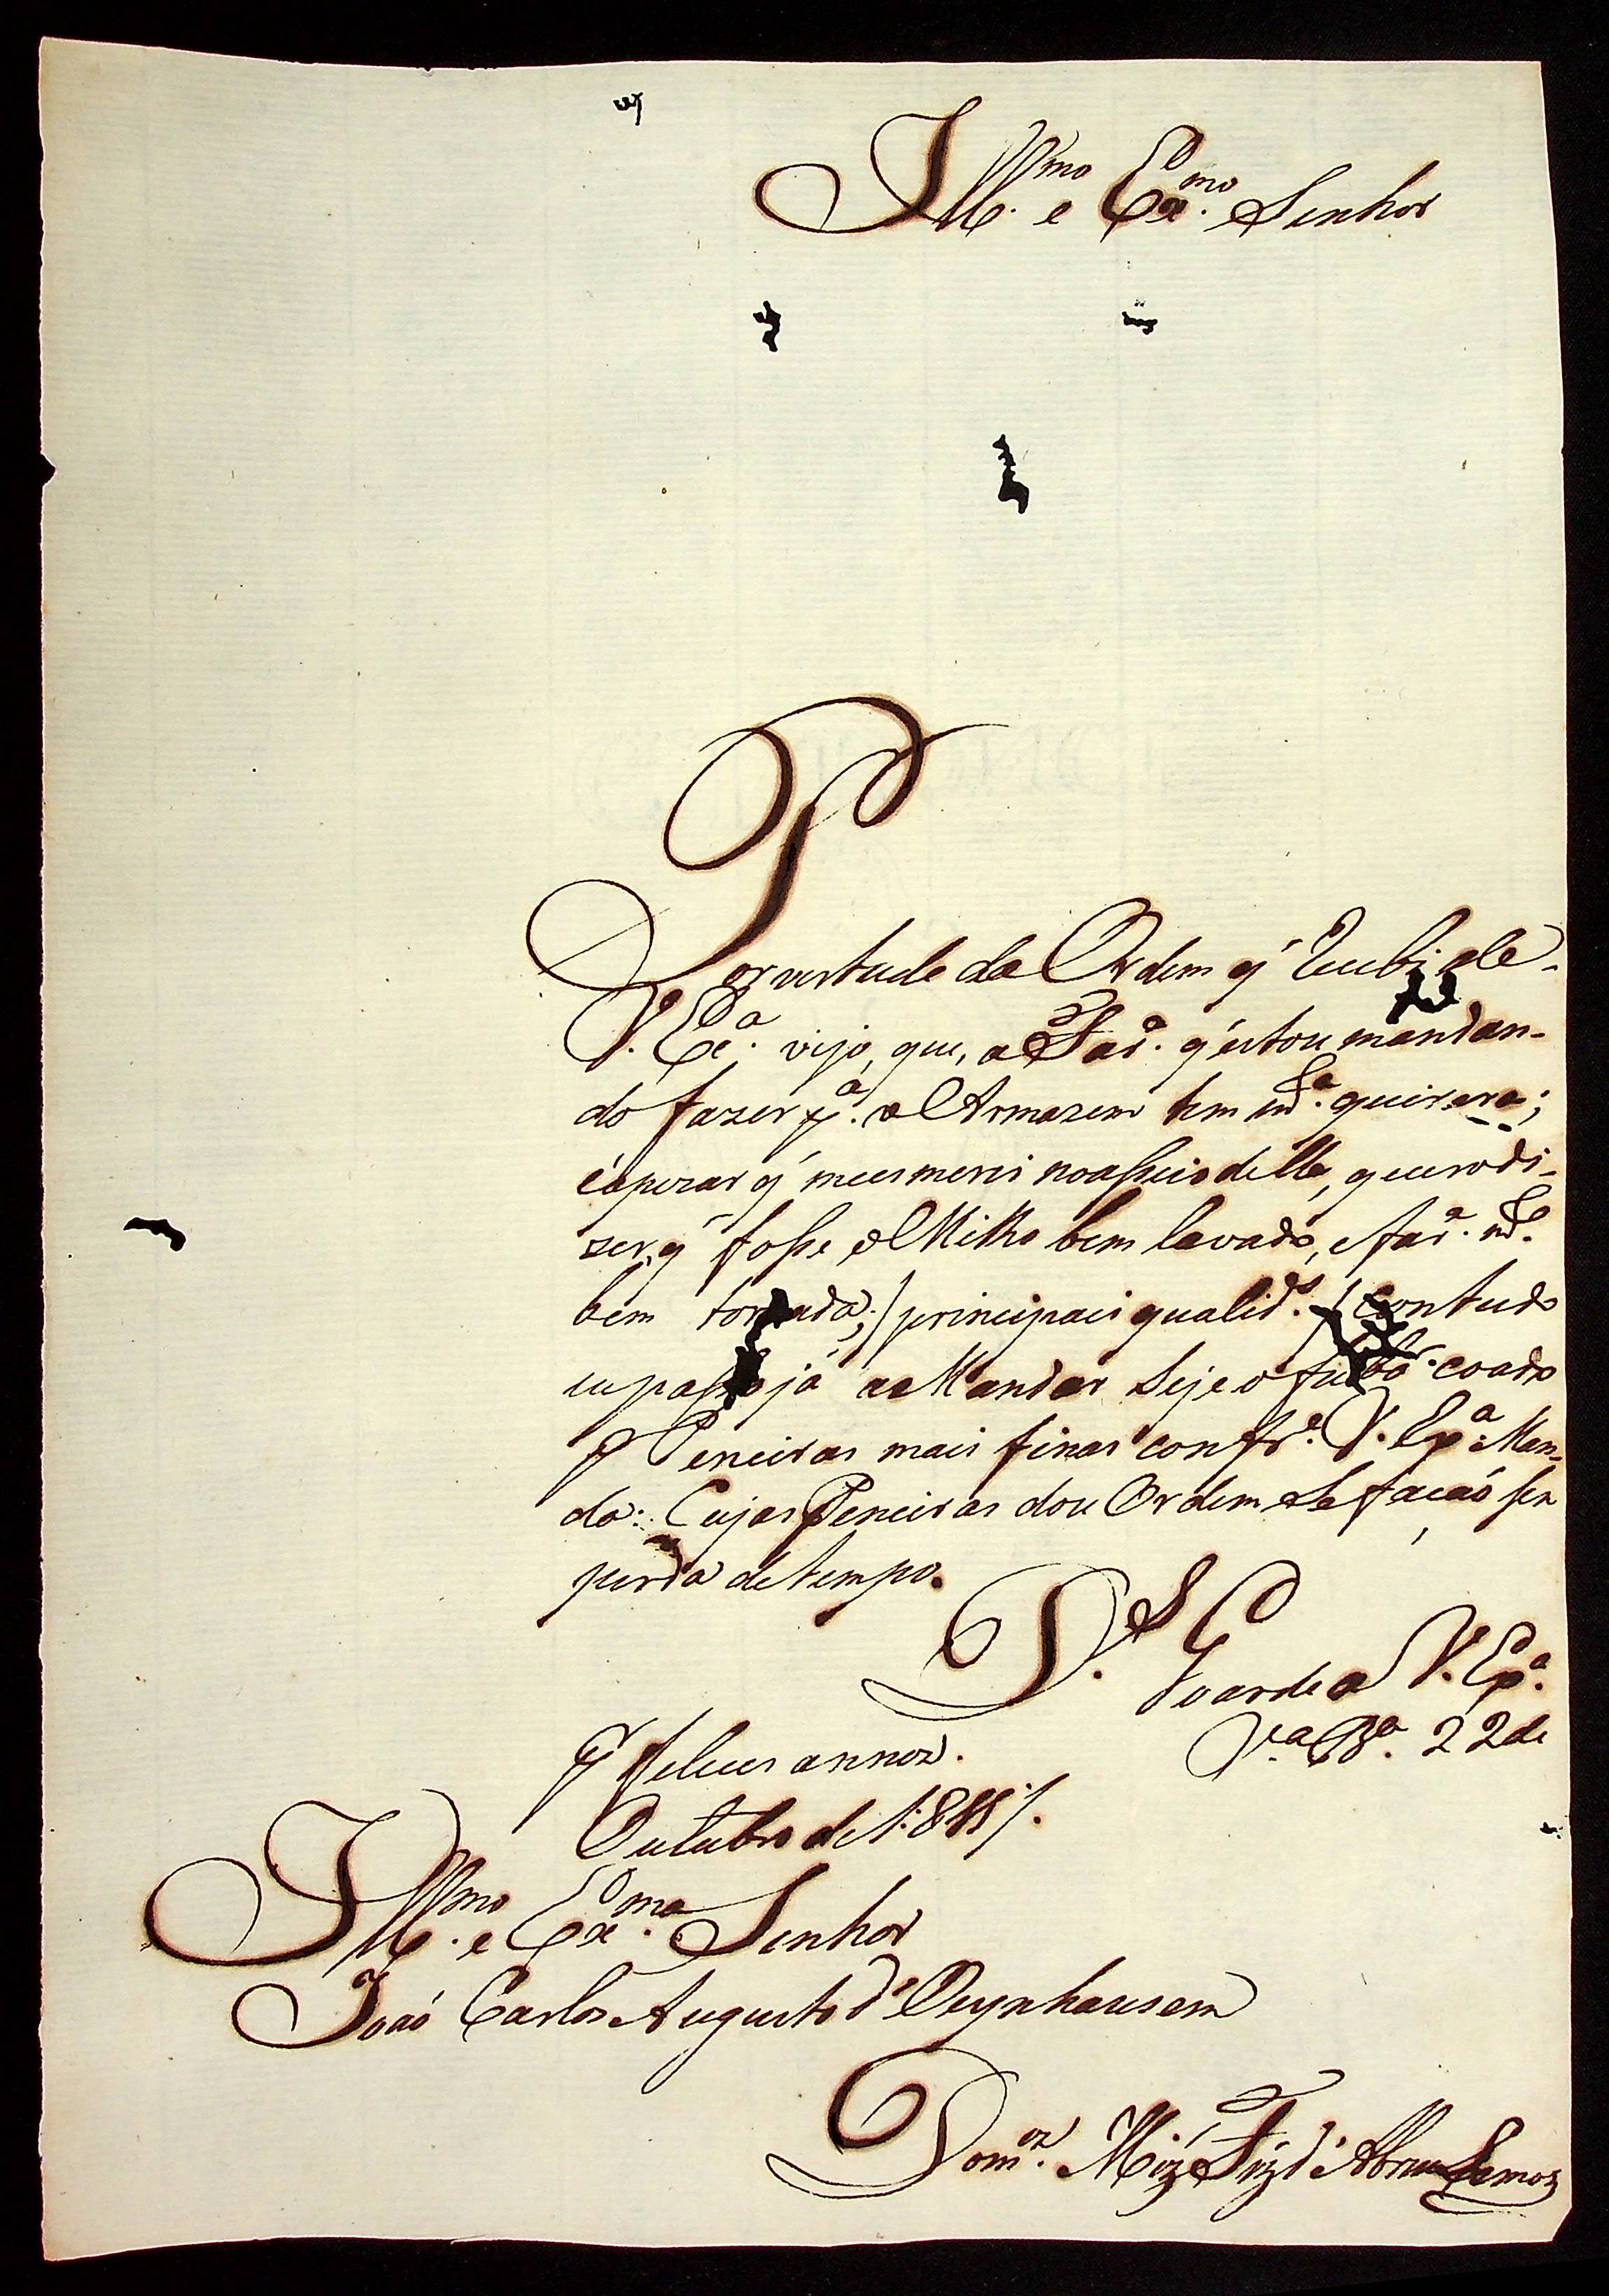 Ill.mo e Ex.mo Senhor
Por vertude da Ordem q̃ Recebi de
V. Ex.a vejo, que, a Far.a q̃ estou mandan-
do fazer p.a o Armazem tem m.ta quirera;
é apezar q̃ me esmerei no asseio della, quero di-
zer, q̃ fosse o Milho bem lavado, e far.a m.to
bem torrada; / principais qualid.s / contudo
eu passo já a Mandar seje o fubá coado
p̃ Peneiras mais finas conf.e V. Ex.a Man-
da: Cujas Peneiras dou Ordem se fação sem
perda de tempo.
D.s G
Guarde a V. Ex.a
p̃ felices annoz. V.a B.a 22 de
Outubro de 1:81
Ill.mo e Ex.mo Senhor
João Carlos Augusto d'Oeynhausem
Dom.oz Miz Frz d'Abreu Lemos